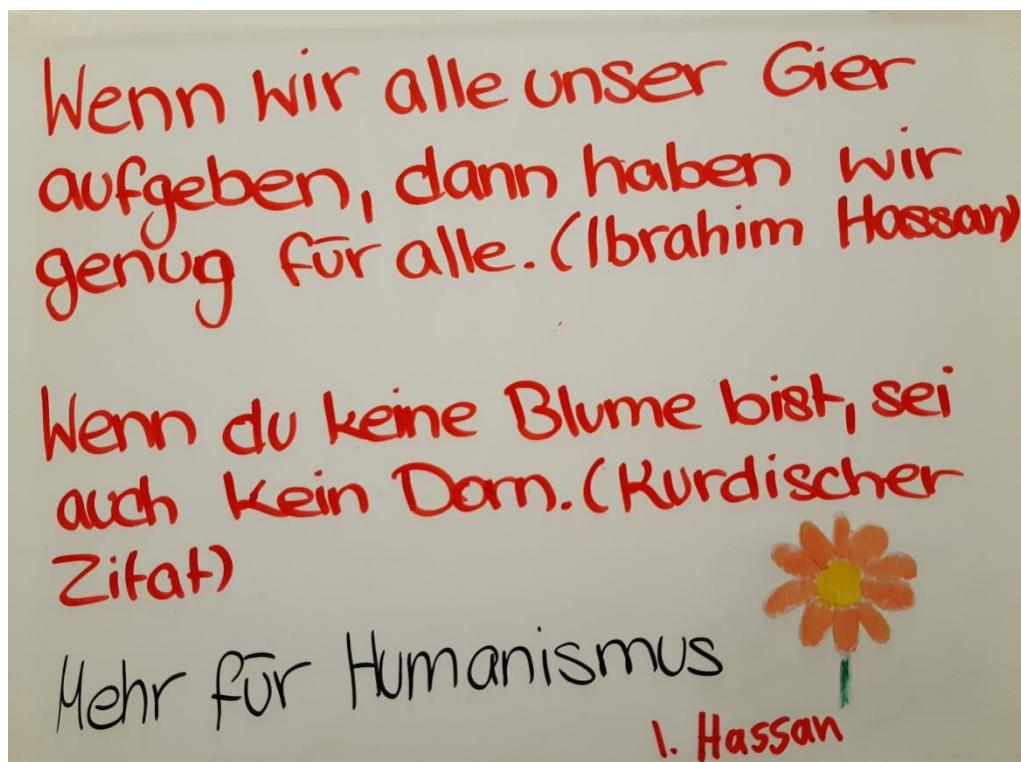 Wenn wir alle unser Gier
aufgeben, dann haben wir
genug für alle. (Ibrahim Hassan)
Wenn du keine Blume bist, sei
auch kein Dorn. (Kurdischer
Zitat)
Mehr für Humanismus
I. Hassan